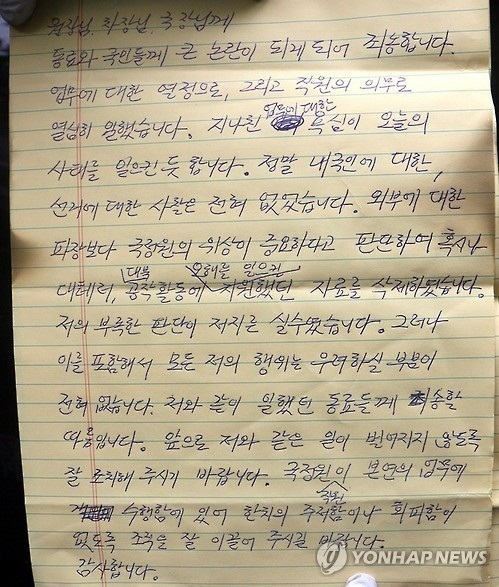 원장님, 차장님, 국장님께
동료와 국민들께 큰 논란이 되게 되어 죄송합니다.
업무에 대한 열정으로, 그리고 직원의 의무로
열심히 일했습니다. 지나친 업무에 대한 욕심이 오늘의
사태를 일으킨 듯 합니다. 정말 내국인에 대한,
선거에 대한 사찰은 전혀 없었습니다. 외부에 대한
파장보다 국정원의 위상이 중요하다고 판단하여 혹시나
대테러, 대북 공작활동에 오해를 일으킬 지원했던 자료를 삭제하였습니다.
저의 부족한 판단이 저지른 실수였습니다. 그러나
이를 포함해서 모든 저의 행위는 우려하실 부분이
전혀 없습니다. 저와 같이 일했던 동료들께 죄송할
따름입니다. 앞으로 저와 같은 일이 벌어지지 않도록
잘 조치해 주시기 바랍니다. 국정원이 본연의 업무에
수행함에 있어 한치의 주저함이나 회피함이
없도록 조직을 잘 이끌어 주시길 바랍니다.
감사합니다.
YONHAPNEWS